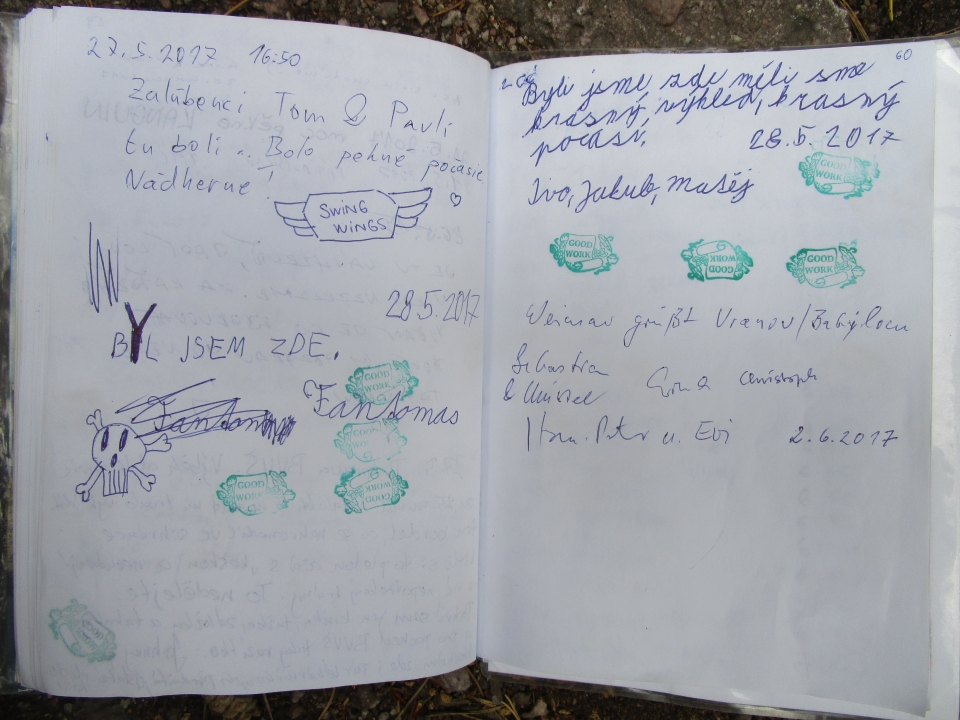 27.5.2017 16:50
Zalúbenci Tom & Pavlí
tu boli .. Bolo pekné počasie
Nádherne!
SWING
WINGS
28.5.2017
BYL JSEM ZDE.
GOOD
WORK
Fantomas
Fantomas
GOOD
WORK
GOOD
WORK
GOOD
WORK
60
Byli jsme zde měli sme
krasný výhled, krasný
počasí. 28.5.2017
GOOD
WORK
Ivo, Jakub, Matěj
GOOD
WORK
GOOD
WORK
GOOD
WORK
Weimar grüßt Vranov/Babylon
Sebastian
& Christoph
Peter u. Evi 2.6.2017